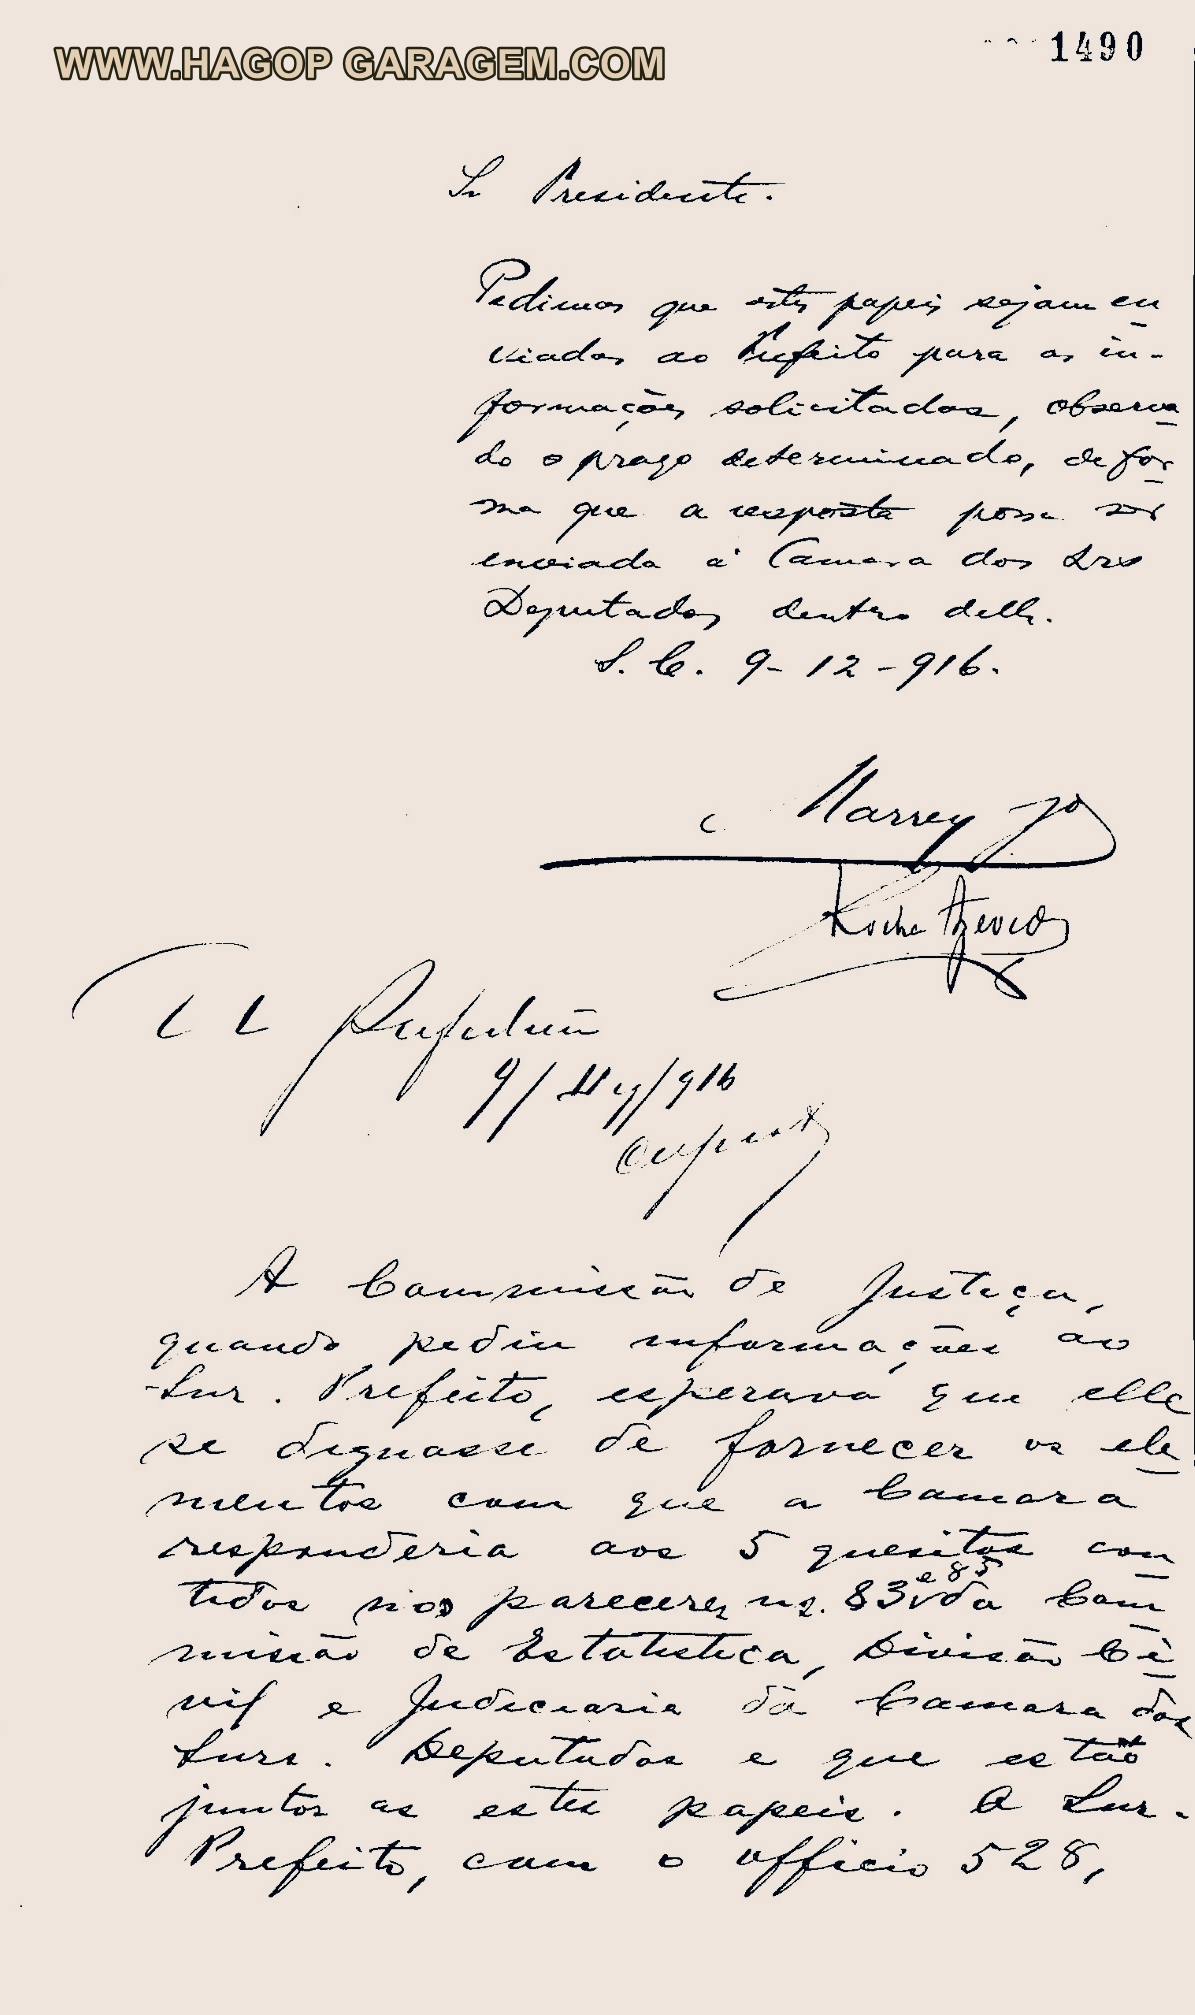 WWW.HAGOP GARAGEM.COM
1490
Sr Presidente.
Pedimos que estes papeis sejam en
viados ao Prefeito para as in-
formações solicitadas, observa
do o prazo determinado, de for
ma que a resposta possa ser
enviada á Camara dos Srs
Deputados dentro delle.
S. C. 9-12-916.
Marrey Jor
Rocha Azevedo
9/ /916
A Commissão de Justiça,
quando pediu informações ao
Snr. Prefeito, esperava que elle
se dignasse de fornecer os ele
mentos com que a Camara
responderia aos 5 quesitos con
tidos nos pareceres ns. 83 e 85 da Com
missão de Estatistica, Divisão Ci
vil e Judiciaria da Camara dos
Snrs. Deputados e que estão
juntos as estes papeis. O Snr.
Prefeito, com o officio 528,